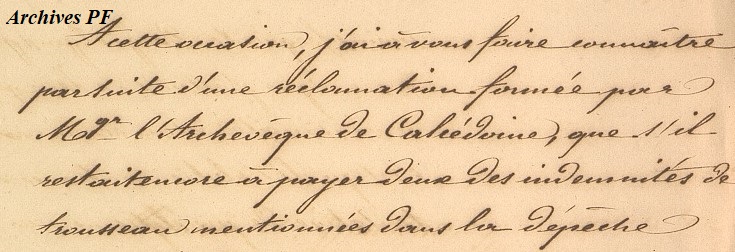 Archives PF
A cette occasion, j'ai à vous faire connaître
par suite d'une réclamation formée par
Mgr l'Archevêque de Calcédoine, que s'il
restait encore à payer deux des indemnités de
trousseau mentionnées dans la dépêche